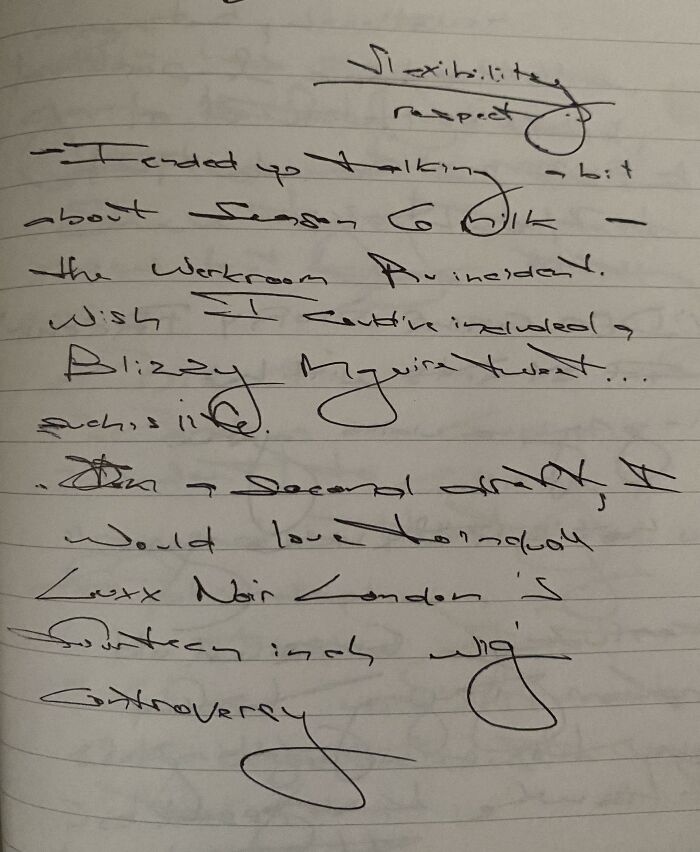 flexibility
respect
- I ended up talking a bit
about Season 6 milk -
the Werkroom Ru incident.
Wish I could've included a
Blizzy Mguire tweet...
such is life.
. In a second draft, I
would love to include
Luxx Noir London's
fourteen inch wig
controversy